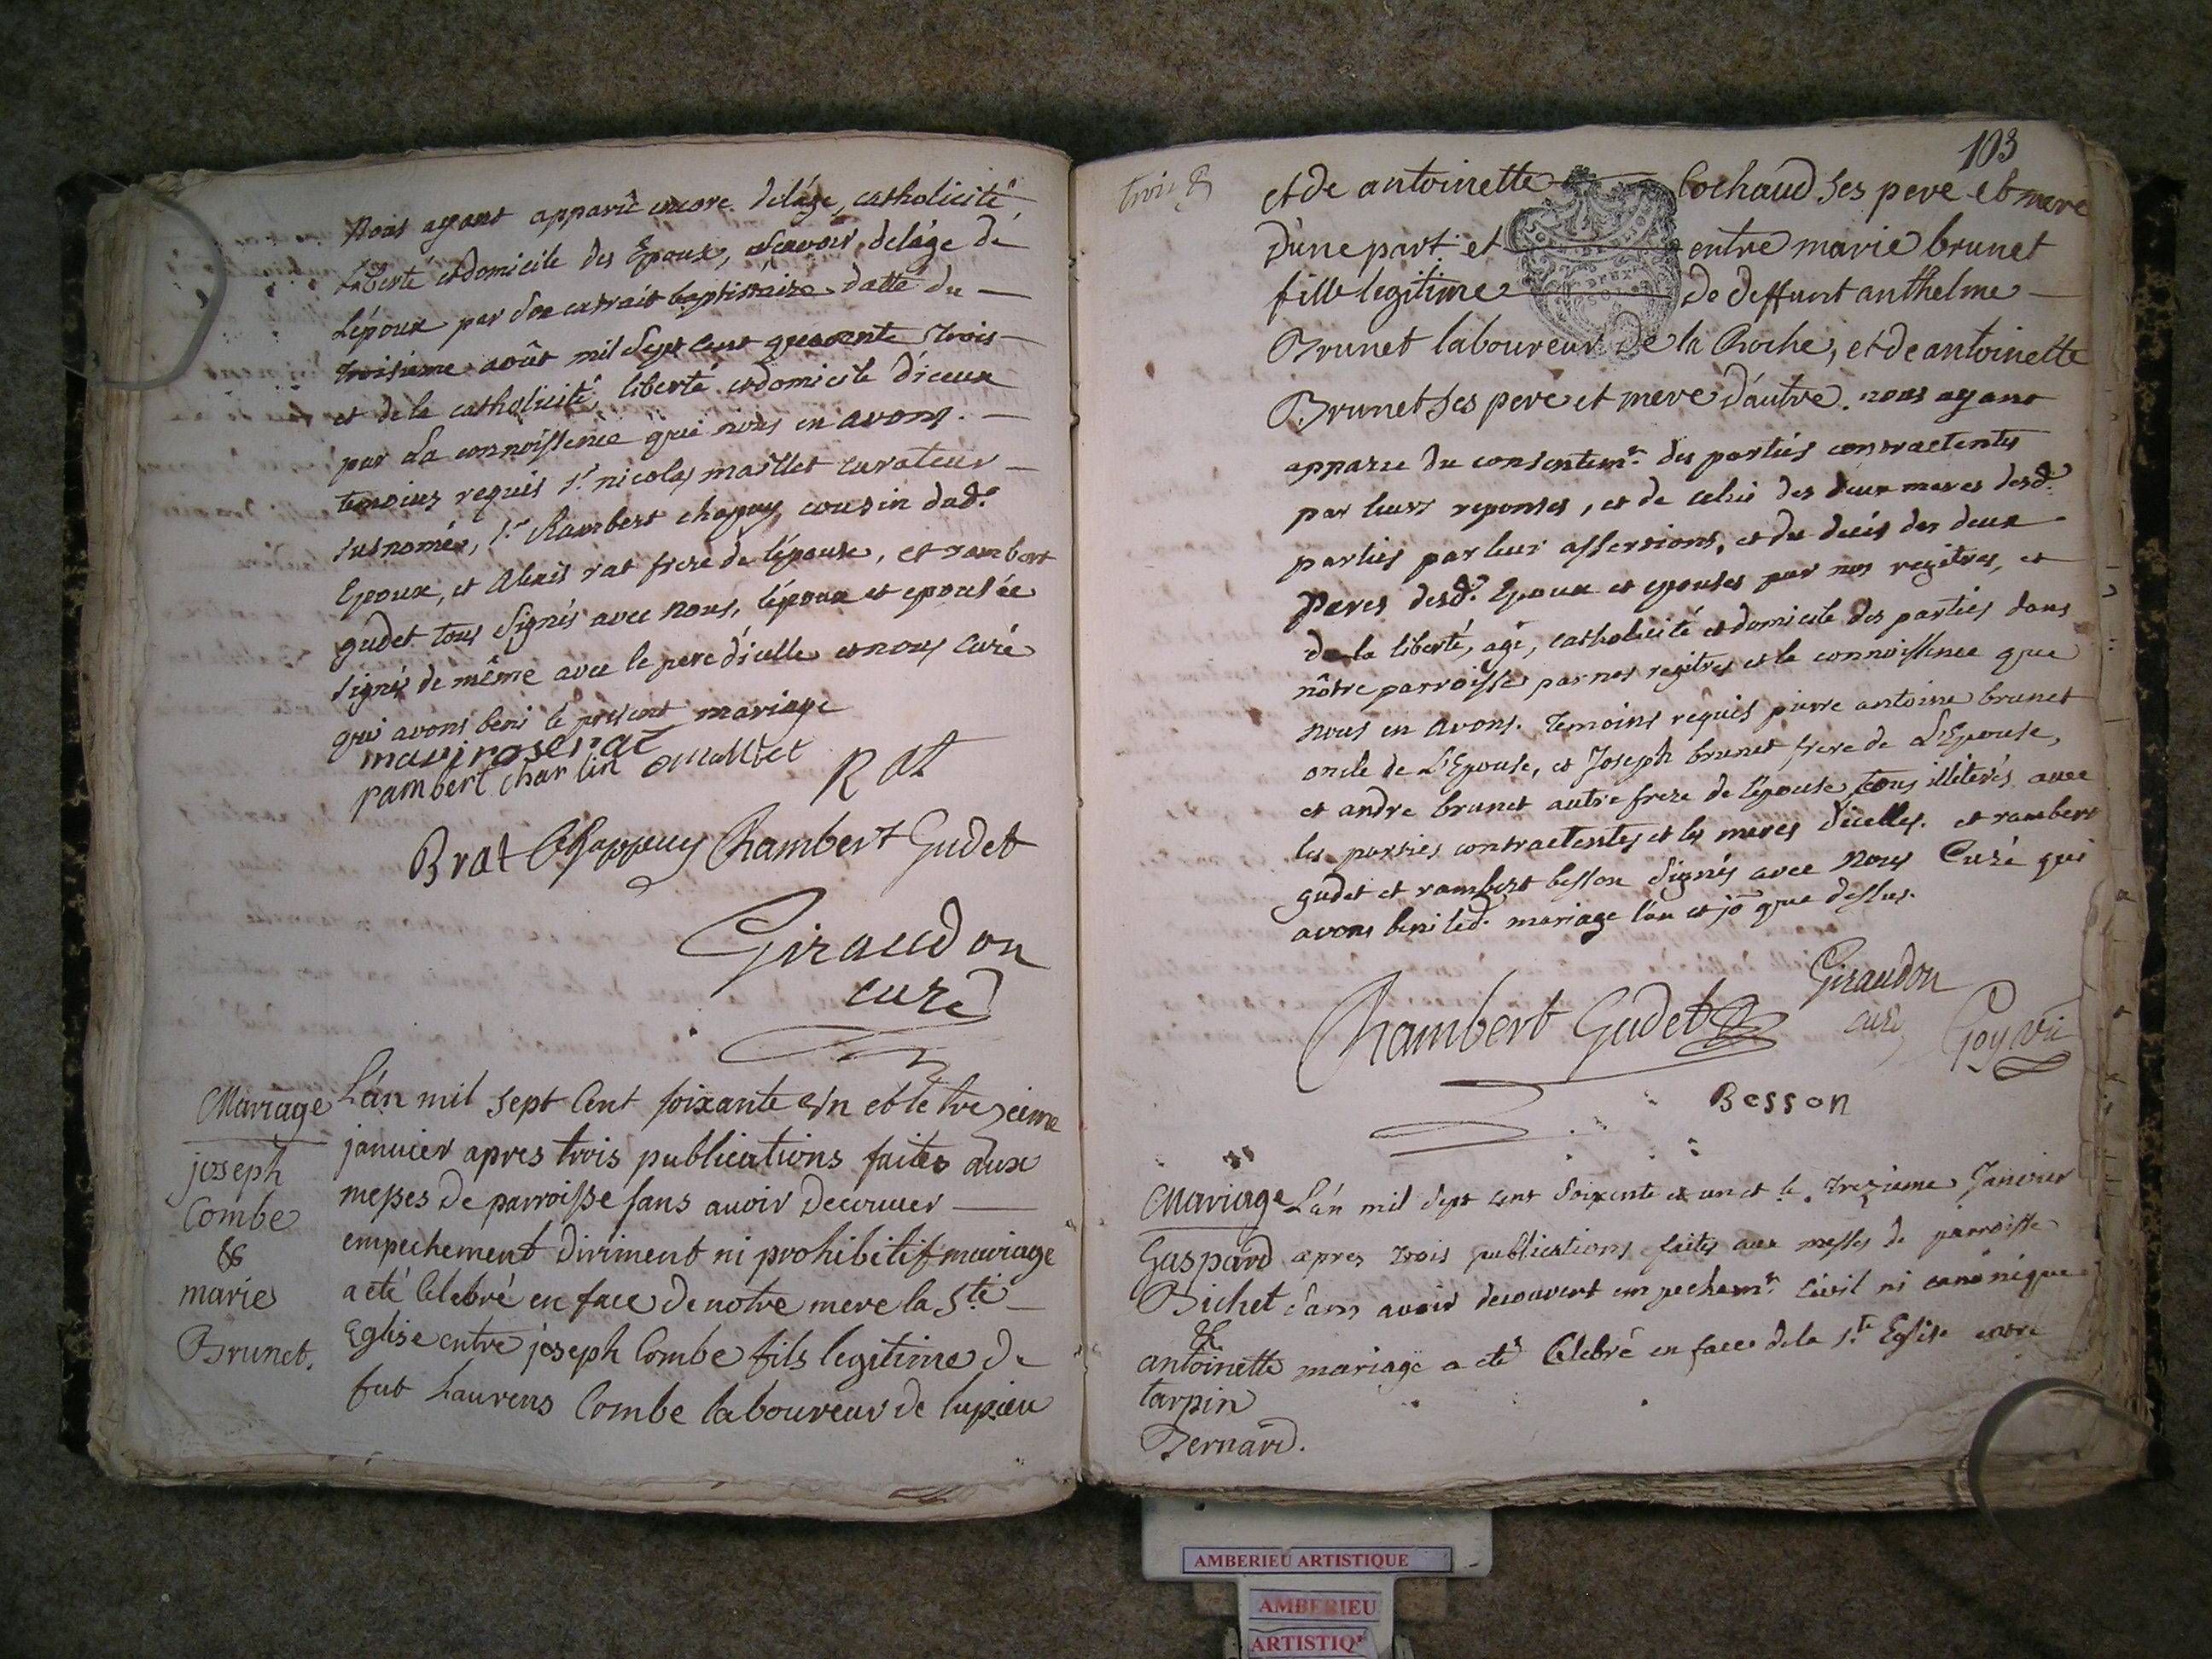 Nous ayant apparû encore delâge, catholicité
liberté et domicile des Epoux, sçavoir delâge de
L'époux par son extrait baptistaire datté du —
troisieme août mil sept cent quarente trois —
et de la catholicité, liberté et domicile d'iceux
par La connoissence que nous en avons. —
temoins requis Sr. nicolas maillet curateur —
susnomé, Sr. Rambert chapuy cousin dud.
Epoux, et Alexis rat frere de l'épouse, et rambert
gudet tous signés avec nous, l'époux et epousée
signés de même avec le pere d'icelle et nous curé
qui avons beni le present mariage
rambert charlin Maillet Rat
Brat Chappuy Rambert Gudet
Giraudon
curé
Mariage
joseph
Combe
&
marie
Brunet.
L'án mil sept Cent soixante et le treizeime
janvier apres trois publications faites aux
messes de parroisse sans avoir decouver —
empechement diriment ni prohibitif mariage
a eté Celebré en face de notre mere la Ste —
Eglise entre joseph Combe fils legitime de
fut Laurens Combe laboureur de lupieu
103
et de antoinette — Cochaud ses pere et mere
d'une part et — entre marie brunet
fille legitime — de deffunt anthelme —
Brunet laboureur de la Roche, et de antoinette
Brunet ses pere et mere d'autre. nous ayant
apparu du consentemt. des parties contractentes
par leurs reponses, et de celui des deux meres desd.
parties par leur assersions, et du decés des deux
Peres desd. Epoux et epouses par nos regitres, et
de la liberté, age, catholicité et domicile des parties dans
nôtre parroisse par nos regitres et la connoissence que
nous en avons. Temoins requis pierre antoine brunet
oncle de L'Epouse, et Joseph brunet frere de L'Epouse,
et andre brunet autre frere de l'épouse, tous illiterés avec
les parties contractentes et les meres d'icelles. et rambert
gudet et rambert besson signés avec Nous Curé qui
avons beni led. mariage l'an et jo que dessus.
Giraudon
curé
Rambert Gudet
Besson
Mariage
Gaspard
Bichet
&
antoinette
tarpin
Bernard.
L'án mil sept cent soixente et un et le trezieme Janvier
apres trois publications faites aux messes de parroisse
sans avoir decouvert empechemt. Civil ni canonique
mariage a eté Celebré en face de la Ste Eglise entre
AMBERIEU ARTISTIQUE
AMBERIEU
ARTISTIQ